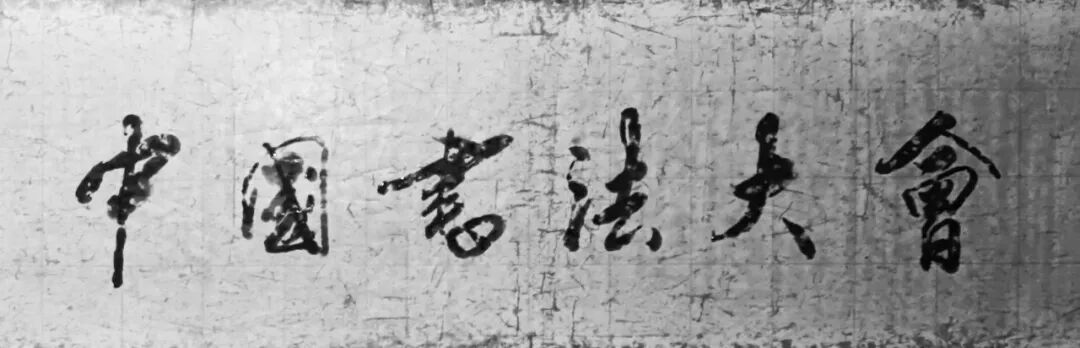 中國書法大會